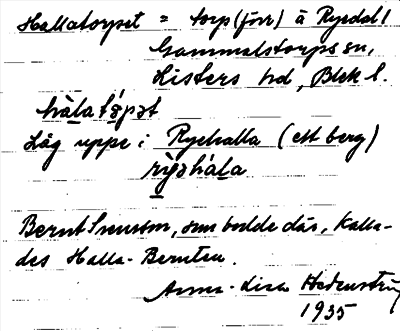 Hallatorpet = torp (förr) å Ryedal /
Gammalstorps sn,
Listers hd, Blek l.
hàlatǫ́pət
Låg uppe i Ryehalla (ett berg)
rỳəhála
Bernt Svensson, som bodde där, Kalla-
des Halla-Bernten.
Anna-Lisa Hedenström
1935